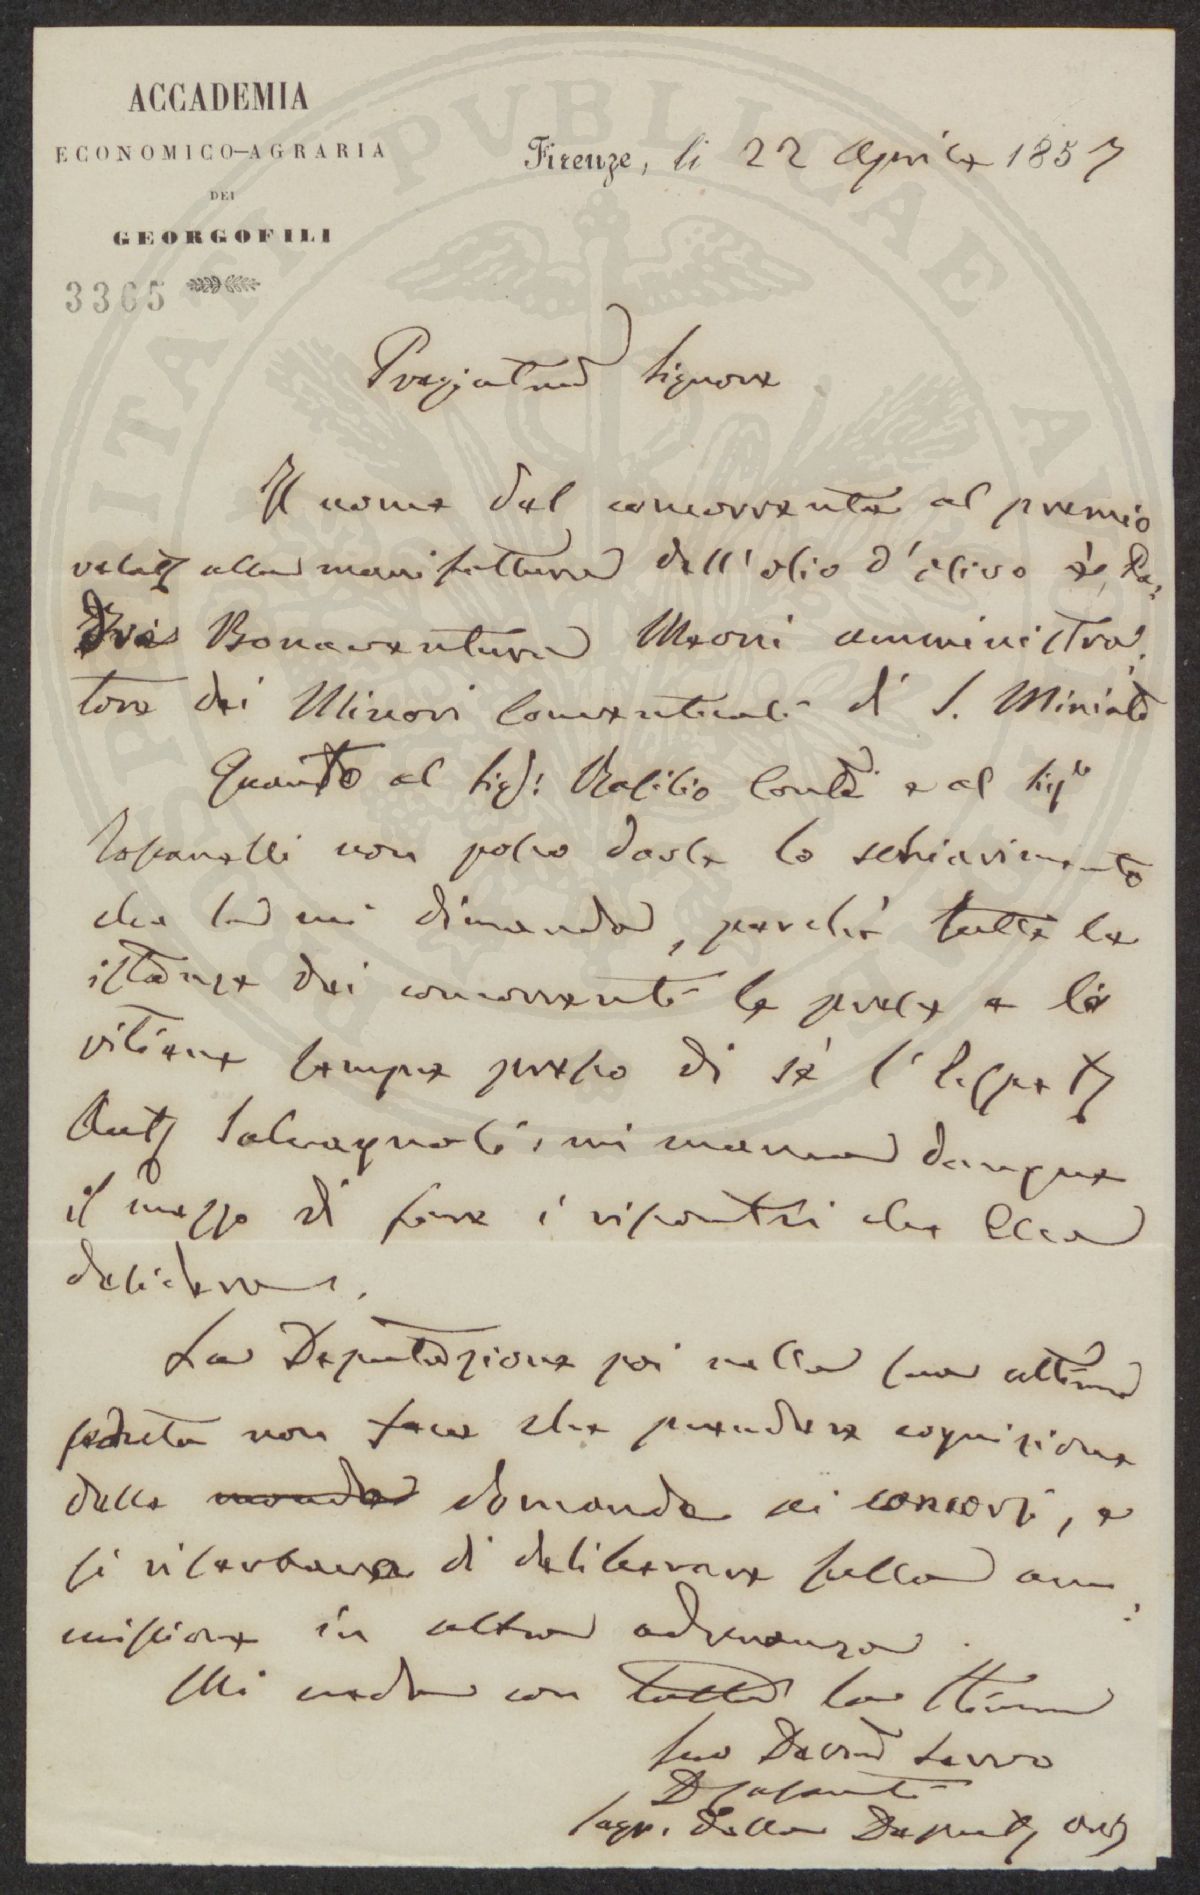 ACCADEMIA
ECONOMICO-AGRARIA
DEI
GEORGOFILI
3365
Firenze, li 22 Aprile 1857
Pregiatmo Signore
Il nome del concorrente al premio
relatº alla manifattura dell'olio d'olivo è, Pa-
dre Bonaventura Meoni amministra-
tore dei Minori Conventuali di S. Miniato
Quanto al Sigr: Conti e al Sigre
Toscanelli non posso darle lo schiarimento
che Ella mi dimanda, perchè tutte le
istanze dei concorrenti le prese e le
ritiene sempre presso di sè l'Ispettº
Salvagnoli, mi manca dunque
il mezzo di fare i riscontri che Ella
desidera.
La Deputazione poi nella sua ultima
seduta non fece che prendere cognizione
delle domande ai concorsi, e
si riserbava di deliberare sulla am-
missione in altra adunanza.
Mi creda con tutta la stima
suo Devmo Servo
Segr. della Deputº Ordª
PVBLICAE